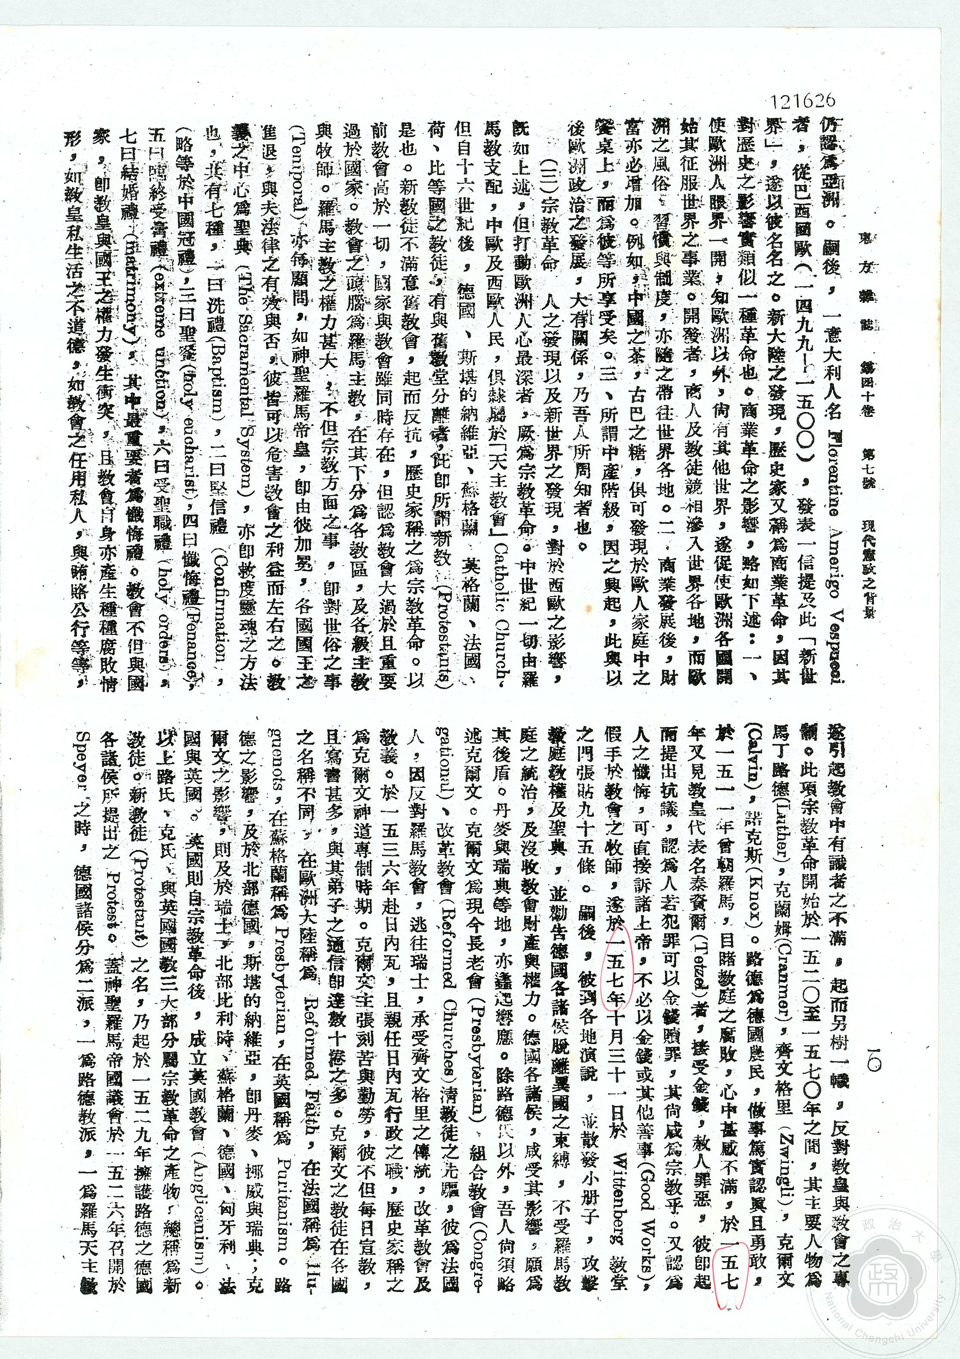 121626
東方雜誌 第四十卷 第七號 現代憲政之背景
一〇
仍認爲亞洲。嗣後,一意大利人名 Florentine Amerigo Vespucci
者,從巴西國歐(一四九九—一五〇〇),發表一信提及此「新世
界」,遂以彼名名之。新大陸之發現,歷史家又稱爲商業革命,因其
對歷史之影響實類似一種革命也。商業革命之影響,略如下述:一、
使歐洲人眼界一開,知歐洲以外,尙有其他世界,遂促使歐洲各國開
始其征服世界之事業。開發者,商人及教徒競相滲入世界各地,而歐
洲之風俗、習慣與制度,亦隨之帶往世界各地。二、商業發展後,財
富亦必增加。例如,中國之茶,古巴之糖,俱可發現於歐人家庭中之
餐桌上,而爲彼等所享受矣。三、所謂中產階級,因之興起,此與以
後歐洲政治之發展,大有關係,乃吾人所周知者也。
(三)宗教革命 人之發現以及新世界之發現,對於西歐之影響,
旣如上述,但打動歐洲人心最深者,厥爲宗教革命。中世紀一切由羅
馬教支配,中歐及西歐人民,俱隸屬於「天主教會」Catholic Church.
但自十六世紀後,德國、斯堪的納維亞、蘇格蘭、英格蘭、法國、
荷、比等國之教徒,有與舊教堂分離者,此即所謂新教(Protestants)
是也。新教徒不滿意舊教會,起而反抗,歷史家稱之爲宗教革命。以
前教會高於一切,國家與教會雖同時存在,但認爲教會大過於且重要
過於國家。教會之頭腦爲羅馬主教,在其下分爲各教區,及各級主教
與牧師。羅馬主教之權力甚大,不但宗教方面之事,卽對世俗之事
(Temporal)亦每顧問,如神聖羅馬帝皇,卽由彼加冕,各國國王之
進退,與夫法律之有效與否,彼皆可以危害教會之利益而左右之。教
義之中心爲聖典(The Sacramental System),亦卽救度靈魂之方法
也,共有七種,一曰洗禮(Baptism),二曰堅信禮(Confirmation,
(略等於中國冠禮),三曰聖餐(Holy eucharist),四曰懺悔禮(Penance),
五曰臨終受膏禮(extreme unction),六曰受聖職禮(holy orders),
七曰結婚禮(matrimony),其中最重要者爲懺悔禮。教會不但與國
家,卽教皇與國王之權力發生衝突,且教會自身亦產生種種腐敗情
形,如教皇私生活之不道德,如教會之任用私人,與賄賂公行等等,
遂引起教會中有識者之不滿,起而另樹一幟,反對教皇與教會之專
制。此項宗教革命開始於一五二〇至一五七〇年之間,其主要人物爲
馬丁路德(Luther),克蘭姆(Cranmer),齊文格里(Zwingli),克爾文
(Calvin),諾克斯(Knox)。路德爲德國農民,做事篤實認眞且勇敢,
於一五一一年曾朝羅馬,目睹教庭之腐敗,心中甚感不滿,於一五七
年又見教皇代表名泰資爾(Tetzel)者,接受金錢,赦人罪惡,彼卽起
而提出抗議,認爲人若犯罪可以金錢贖罪,其尙成爲宗教乎。又認爲
人之懺悔,可直接訴諸上帝,不必以金錢或其他善事(Good Works),
假手於教會之牧師,遂於一五七年十月三十一日於 Wittenberg 教堂
之門張貼九十五條。嗣後,彼到各地演說,並散發小册子,攻擊
教庭教權及聖典,並勸告德國各諸侯脫離異國之束縛,不受羅馬教
庭之統治,及沒收教會財產與權力。德國各諸侯,咸受其影響,願爲
其後盾。丹麥與瑞典等地,亦遙起響應。除路德氏以外,吾人尙須略
述克爾文。克爾文爲現今長老會(Presbyterian)、組合教會(Congre-
gational)、改革教會(Reformed Churches)清教徒之先驅,彼爲法國
人,因反對羅馬教會,逃往瑞士,承受齊文格里之傳統,改革教會及
教義。於一五三六年赴日內瓦,且親任日內瓦行政之職,歷史家稱之
爲克爾文神道專制時期。克爾文主張刻苦與勤勞,彼不但每日宣教,
且寫書甚多,與其弟子之通信卽達數十卷之多。克爾文之教徒在各國
之名稱不同,在歐洲大陸稱爲 Reformed Faith,在法國稱爲 Hu-
guenots,在蘇格蘭稱爲 Presbyterian,在英國稱爲 Puritanism。路
德之影響,及於北部德國,斯堪的納維亞,卽丹麥、挪威與瑞典;克
爾文之影響,則及於瑞士,北部比利時、蘇格蘭、德國、匈牙利、法
國與英國。英國則自宗教革命後,成立英國教會(Anglicanism)。
以上路氏、克氏、與英國國教三大部分屬宗教革命之產物,總稱爲新
教徒。新教徒(Protestant)之名,乃起於一五二九年擁護路德之德國
各諸侯所提出之 Protest。蓋神聖羅馬帝國議會於一五二六年召開於
Speyer 之時,德國諸侯分爲二派,一爲路德教派,一爲羅馬天主教
政治大學
National Chengchi University